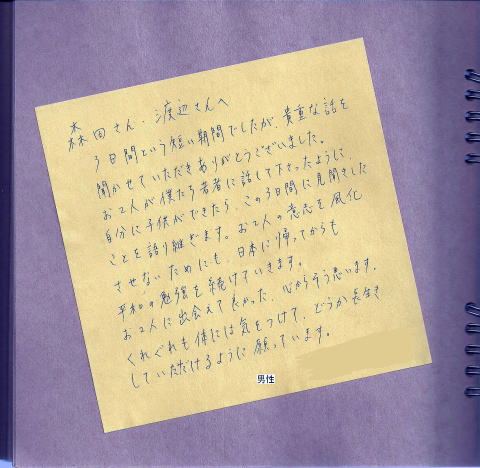 森田さん、渡辺さんへ
3日間という短い期間でしたが、貴重な話を
聞かせていただきありがとうございました。
お2人が僕たち若者に話して下さったように、
自分に子供ができたら、この3日間に見聞きした
ことを語り継ぎます。お2人の意志を風化
させないためにも、日本に帰ってからも
平和の勉強を続けていきます。
お2人に出会えて良かった、心からそう思います。
くれぐれも体には気をつけて、どうか長生き
していただけるように願っています。
男性